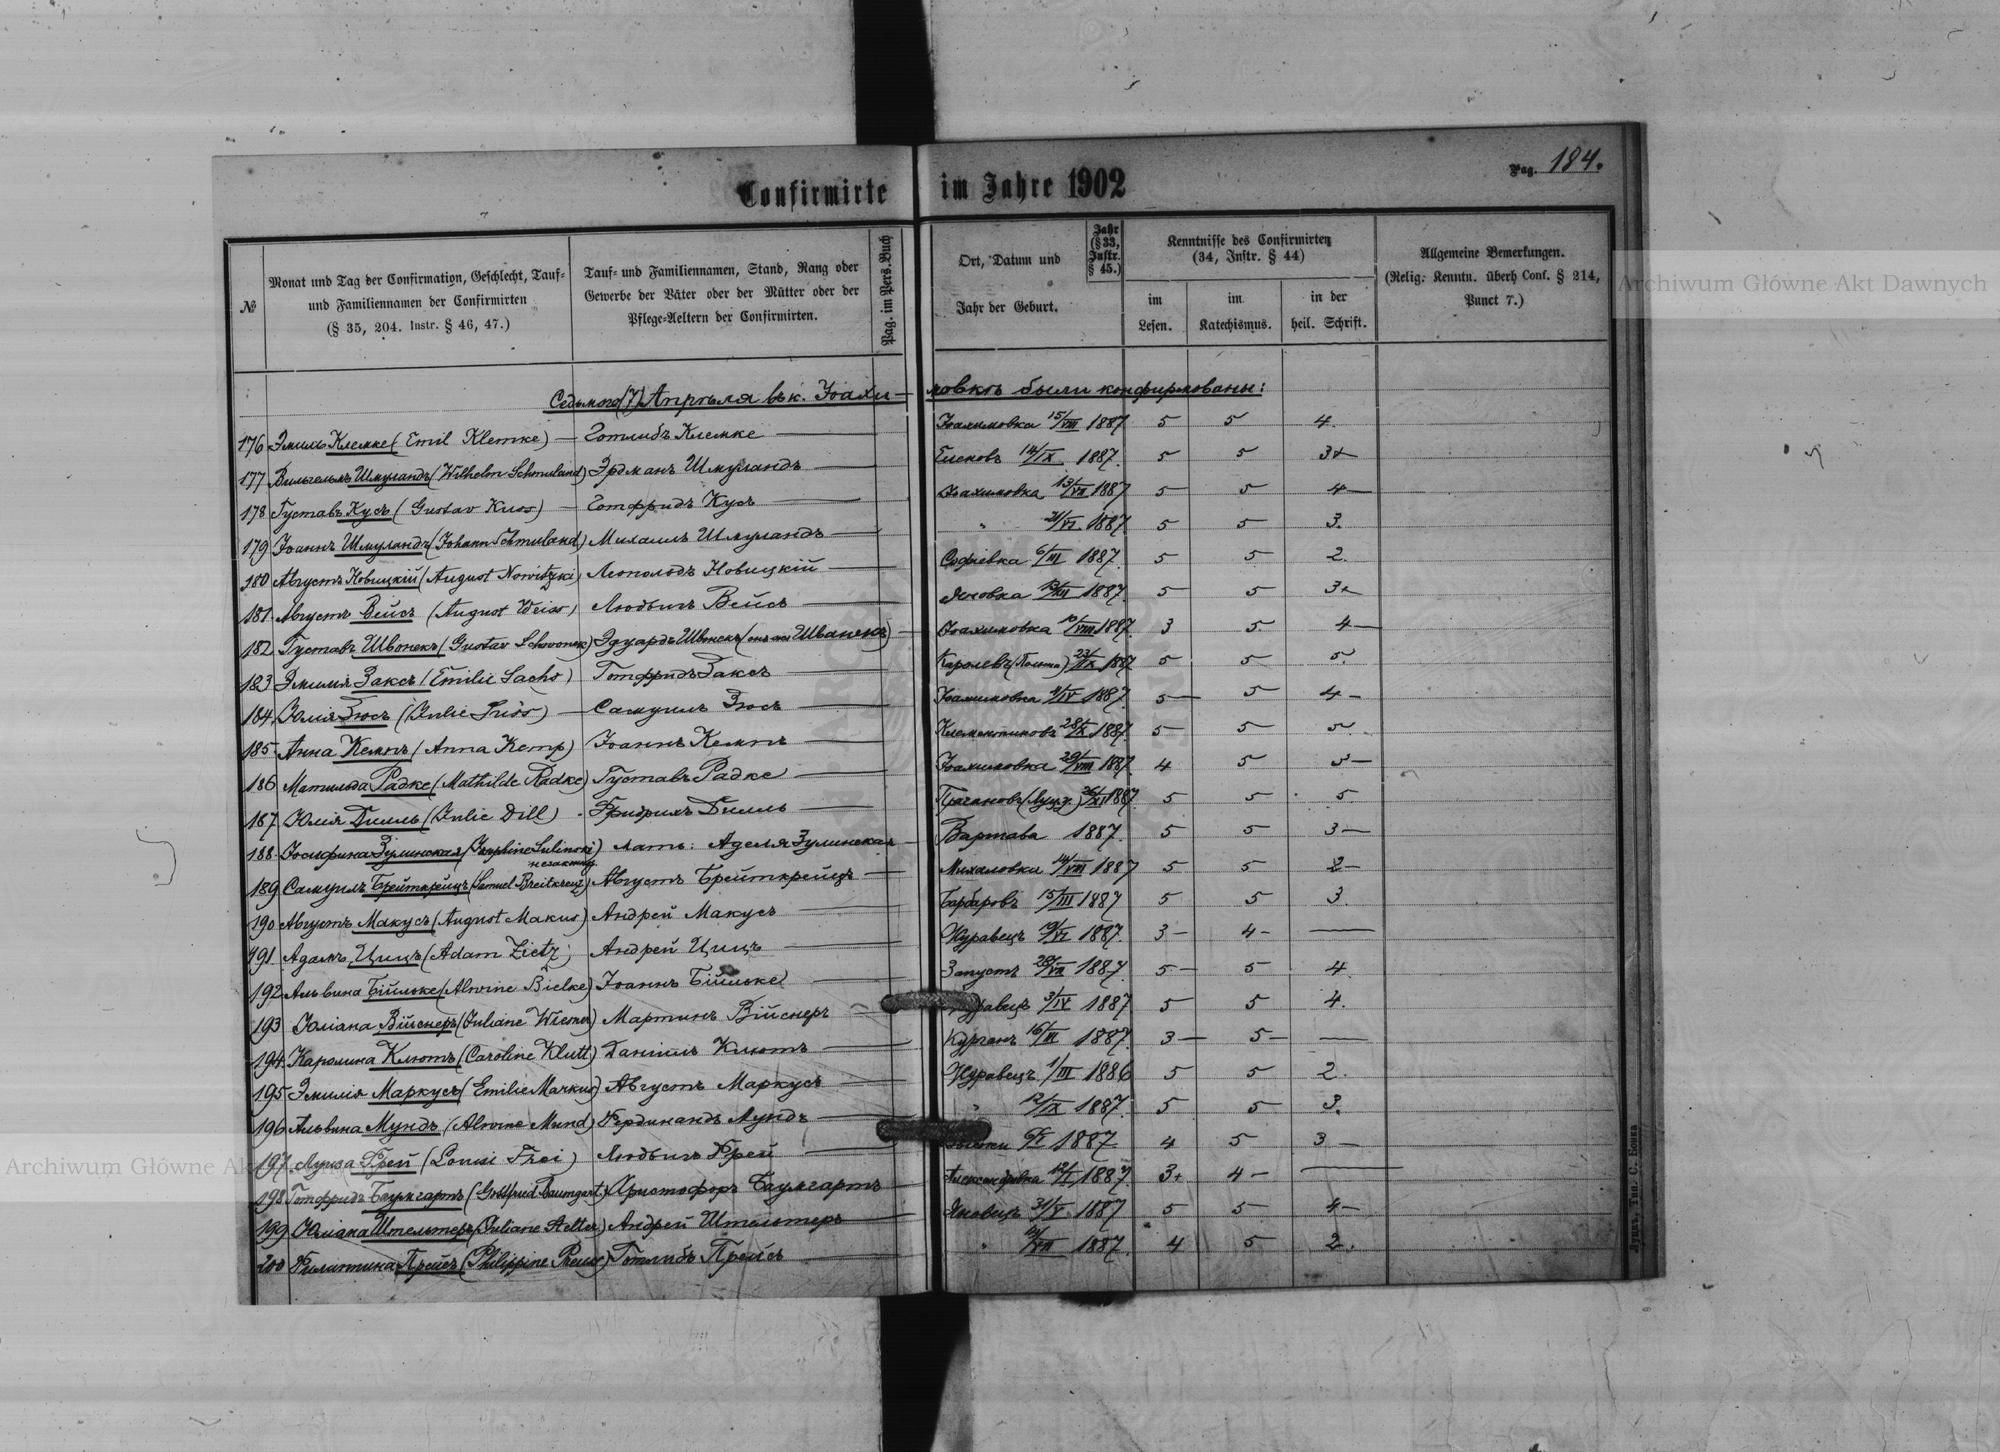 Confirmirte im Jahre 1902
Pag. 184.
№
Monat und Tag der Confirmation, Geschlecht, Tauf-
und Familiennamen der Confirmirten
(§ 35, 204. Instr. § 46, 47.)
Tauf- und Familiennamen, Stand, Rang oder
Gewerbe der Väter oder der Mütter oder der
Pflege-Aeltern der Confirmirten.
Pag. im Pers. Buch
Ort, Datum und
Jahr der Geburt.
Jahr
(§ 33,
Instr.
§ 45.)
Kenntnisse des Confirmirten
(34, Instr. § 44)
im
Lesen.
im
Katechismus.
in der
heil. Schrift.
Allgemeine Bemerkungen.
(Relig.- Kenntn. überh Conf. § 214,
Punct 7.)
Седьмого (7) Апрѣля въ к. Іоахимовкѣ были конфирмованы:
176 Эмиль Клемке (Emil Klemke) — Готлибъ Клемке — Іоахимовка 15/VIII 1887 5 5 4.
177 Вильгельмъ Шмуландъ (Wilhelm Schmuland) Эрдманъ Шмуландъ — 14/IX 1887. 5 5 3+
178 Густавъ Кусъ (Gustav Kuss) — Готфридъ Кусъ — Іоахимовка 13/VII 1887 5 5 4—
179 Іоаннъ Шмуландъ (Johann Schmuland) Михаилъ Шмуландъ — " 21/VI 1887. 5 5 3.
180 Августъ Новицкій (August Nowitzki) Леопольдъ Новицкій — Софіевка 6/III 1887. 5 5 2.
181 Августъ Вейсъ (August Weiss) Людвигъ Вейсъ — 13/XII 1887. 5 5 3+
182 Густавъ Швонекъ (Gustav Schwonek) Эдуардъ Швонекъ (онъ же Шваненъ) — Іоахимовка 10/VIII 1887. 3 5. 4—
183 Эмилія Заксъ (Emilie Sachs) Готфридъ Заксъ — 23/IX 1887 5 5 5.
184 Юлія Зюсъ (Julie Süss) — Самуилъ Зюсъ — Іоахимовка 4/IV 1887. 5— 5 4—
185 Анна Кемпъ (Anna Kemp) Іоаннъ Кемпъ — Клементиновъ 28/X 1887. 5— 5 5.
186 Матильда Радке (Mathilde Radke) Густавъ Радке — Іоахимовка 29/VIII 1887 4 5 5—
187 Юлія Дилль (Julie Dill) Фридрихъ Дилль — 26/XI 1887. 5 5 5
188 Іосифина Зулинская (Josephine Sulinski) незаконн. мать: Аделя Зулинская — Варшава 1887. 5 5 3—
189 Самуилъ Брейткрейцъ (Samuel Breitkreuz) Августъ Брейткрейцъ — Михаловка 14/VIII 1887 5 5 2—
190 Августъ Макусъ (August Makus) Андрей Макусъ — Барбаровъ 15/III 1887 5 5 3.
191 Адамъ Цицъ (Adam Zietz) Андрей Цицъ — Журавецъ 19/VI 1887. 3— 4— —
192 Альвина Бійльке (Alwine Bielke) Іоаннъ Бійльке — Запустъ 28/VII 1887 5— 5 4.
193 Юліана Війснеръ (Juliane Wiesner) Мартинъ Війснеръ — 3/IV 1887 5 5 4.
194 Каролина Клютъ (Caroline Klutt) Даніилъ Клютъ — Курганъ 16/III 1887. 3— 5— —
195 Эмилія Маркусъ (Emilie Markus) Августъ Маркусъ — Журавецъ 1/III 1886 5 5 2.
196 Альвина Мундъ (Alwine Mund) Фердинандъ Мундъ — " 12/IX 1887. 5 5 3.
197 Луиза Фрей (Louise Frei) Людвигъ Фрей — 1887. 4 5 3—
198 Готфридъ Баумгартъ (Gottfried Baumgart) Христофоръ Баумгартъ — Александровка 1887. 3+ 4— —
199 Юліана Штельтеръ (Juliane Stelter) Андрей Штельтеръ — Яновецъ 31/V 1887 5 5 4—
200 Филиппина Прейсъ (Philippine Preuss) Готлибъ Прейсъ — " 1887. 4 5 2.
Луцкъ, Тип. С. Бонка
Archiwum Główne Akt Dawnych
Archiwum Główne Akt Dawnych